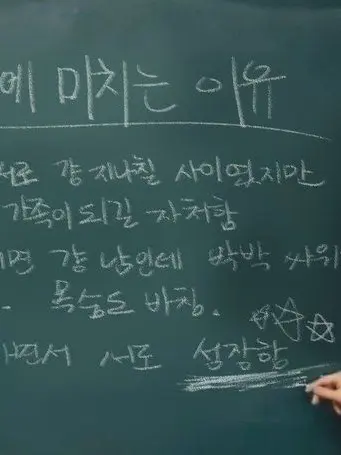 에 미치는 이유
서로 걍 지나칠 사이였지만
가족이 되길 자처함
걍 남인데 박박 싸워
목숨도 바침.
면서 서로 성장함